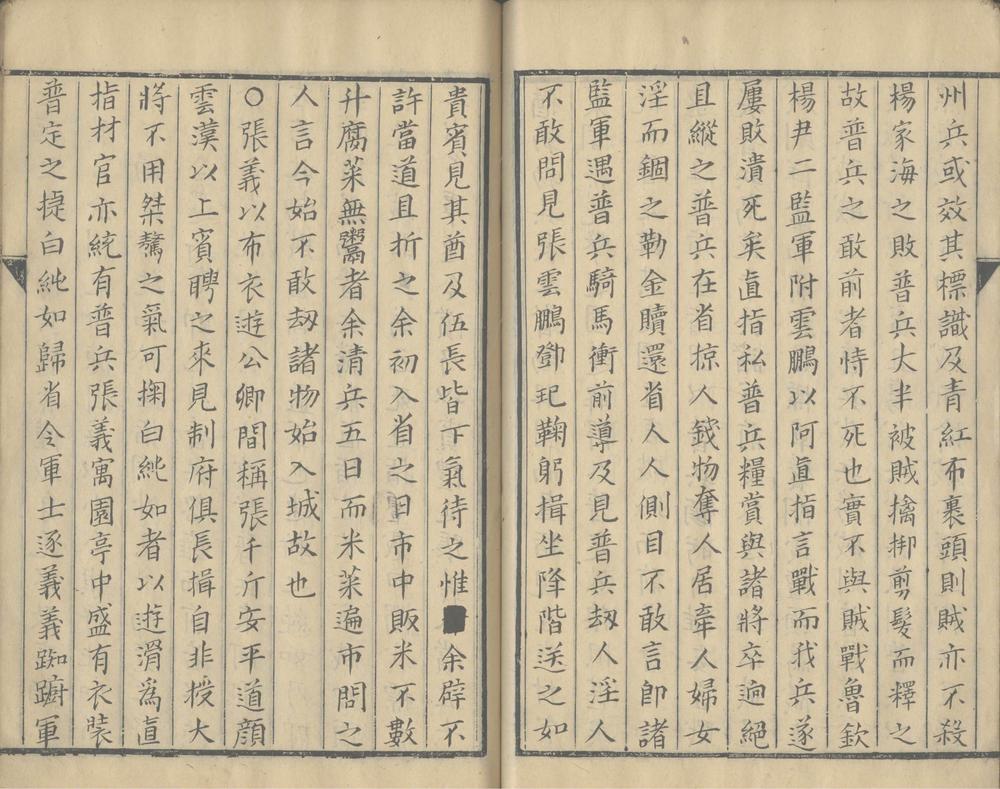 州兵或效其標識及青紅布裹頭則賊亦不殺
楊家海之敗普兵大半被賊擒挷剪髮而釋之
故普兵之敢前者恃不死也實不與賊戰魯欽
楊尹二監軍附雲鵬以阿直指言戰而我兵遂
屢敗潰死矣直指私普兵糧賞與諸將卒逈絕
且縱之普兵在省掠人錢物奪人居牽人婦女
淫而錮之勒金贖還省人人側目不敢言卽諸
監軍遇普兵騎馬衝前導及見普兵刼人淫人
不敢問見張雲鵬鄧玘鞠躬揖坐降階送之如
貴賓見其酋及伍長皆下氣待之惟余辟不
許當道且折之余初入省之日市中販米不數
升腐菜無鬻者余清兵五日而米菜遍市問之
人言今始不敢刼諸物始入城故也
○張義以布衣遊公卿間稱張千斤安平道顔
雲漢以上賓聘之來見制府俱長揖自非授大
將不用桀驁之氣可掬白紕如者以遊滑爲直
指材官亦統有普兵張義寓園亭中盛有衣裝
普定之捷白紕如歸省令軍士逐義義踟躕軍